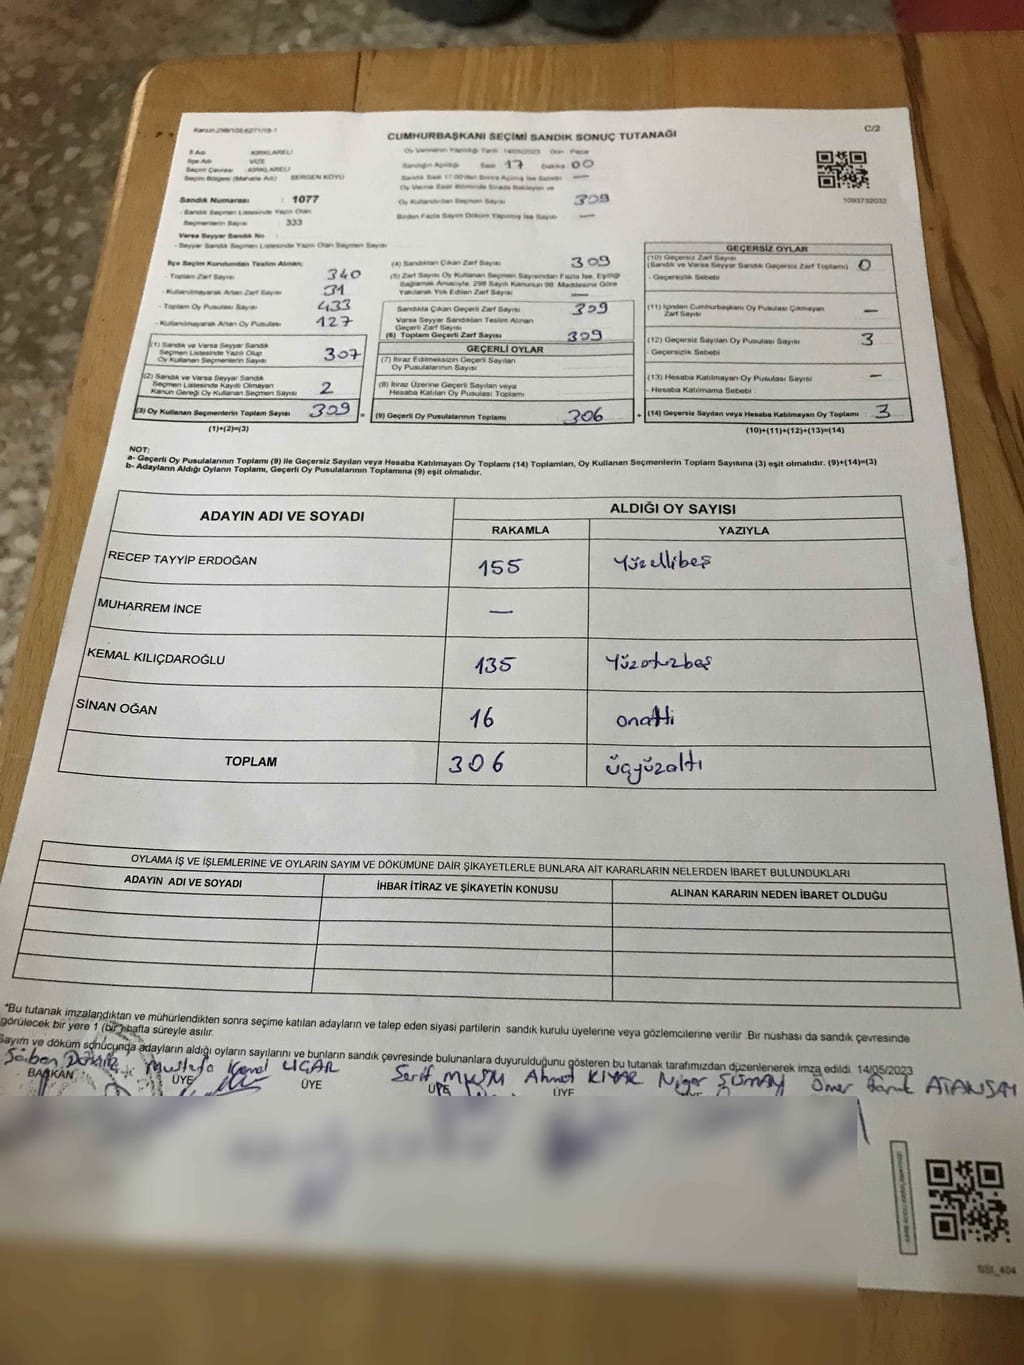 Kanun:298/105:6271/18-1
CUMHURBAŞKANI SEÇİMİ SANDIK SONUÇ TUTANAĞI
C/2
İl Adı KIRKLARELİ
İlçe Adı VİZE
Seçim Çevresi KIRKLARELİ
Seçim Bölgesi (Mahalle Adı) SERGEN KÖYÜ
Sandık Numarası : 1077
- Sandık Seçmen Listesinde Yazılı Olan
Seçmenlerin Sayısı : 333
Varsa Seyyar Sandık No :
- Seyyar Sandık Seçmen Listesinde Yazılı Olan Seçmen Sayısı
Oy Vermenin Yapıldığı Tarih 14/05/2023 Gün Pazar
Sandığın Açıldığı Saat 17 Dakika 00
Sandık Saat 17.00'den Sonra Açılmış İse Sebebi —
Oy Verme Saati Bitiminde Sırada Bekleyen ve
Oy Kullandırılan Seçmen Sayısı 309
Birden Fazla Sayım Döküm Yapılmış İse Sayısı —
1093732032
İlçe Seçim Kurulundan Teslim Alınan;
- Toplam Zarf Sayısı 340
- Kullanılmayarak Artan Zarf Sayısı 31
- Toplam Oy Pusulası Sayısı 433
- Kullanılmayarak Artan Oy Pusulası 127
(1) Sandık ve Varsa Seyyar Sandık
Seçmen Listesinde Yazılı Olup
Oy Kullanan Seçmenlerin Sayısı 307
(2) Sandık ve Varsa Seyyar Sandık
Seçmen Listesinde Kaydı Olmayan
Kanun Gereği Oy Kullanan Seçmen Sayısı 2
(3) Oy Kullanan Seçmenlerin Toplam Sayısı 309 =
(1)+(2)=(3)
(4) Sandıktan Çıkan Zarf Sayısı 309
(5) Zarf Sayısı Oy Kullanan Seçmen Sayısından Fazla İse, Eşitliği
Sağlamak Amacıyla; 298 Sayılı Kanunun 98. Maddesine Göre
Yakılarak Yok Edilen Zarf Sayısı —
Sandıkta Çıkan Geçerli Zarf Sayısı 309
Varsa Seyyar Sandıktan Teslim Alınan
Geçerli Zarf Sayısı
(6) Toplam Geçerli Zarf Sayısı 309
GEÇERLİ OYLAR
(7) İtiraz Edilmeksizin Geçerli Sayılan
Oy Pusulalarının Sayısı
(8) İtiraz Üzerine Geçerli Sayılan veya
Hesaba Katılan Oy Pusulası Toplamı
(9) Geçerli Oy Pusulalarının Toplamı 306 +
GEÇERSİZ OYLAR
(10) Geçersiz Zarf Sayısı
(Sandık ve Varsa Seyyar Sandık Geçersiz Zarf Toplamı) 0
- Geçersizlik Sebebi
(11) İçinden Cumhurbaşkanı Oy Pusulası Çıkmayan
Zarf Sayısı —
(12) Geçersiz Sayılan Oy Pusulası Sayısı 3
- Geçersizlik Sebebi
(13) Hesaba Katılmayan Oy Pusulası Sayısı —
- Hesaba Katılmama Sebebi
(14) Geçersiz Sayılan veya Hesaba Katılmayan Oy Toplamı 3
(10)+(11)+(12)+(13)=(14)
NOT:
a- Geçerli Oy Pusulalarının Toplamı (9) ile Geçersiz Sayılan veya Hesaba Katılmayan Oy Toplamı (14) Toplamları, Oy Kullanan Seçmenlerin Toplam Sayısına (3) eşit olmalıdır. (9)+(14)=(3)
b- Adayların Aldığı Oyların Toplamı, Geçerli Oy Pusulalarının Toplamına (9) eşit olmalıdır.
ADAYIN ADI VE SOYADI ALDIĞI OY SAYISI
RAKAMLA YAZIYLA
RECEP TAYYİP ERDOĞAN 155 Yüzellibeş
MUHARREM İNCE —
KEMAL KILIÇDAROĞLU 135 Yüzotuzbeş
SİNAN OĞAN 16 onaltı
TOPLAM 306 üçyüzaltı
OYLAMA İŞ VE İŞLEMLERİNE VE OYLARIN SAYIM VE DÖKÜMÜNE DAİR ŞİKAYETLERLE BUNLARA AİT KARARLARIN NELERDEN İBARET BULUNDUKLARI
ADAYIN ADI VE SOYADI İHBAR İTİRAZ VE ŞİKAYETİN KONUSU ALINAN KARARIN NEDEN İBARET OLDUĞU
*Bu tutanak imzalandıktan ve mühürlendikten sonra seçime katılan adayların ve talep eden siyasi partilerin sandık kurulu üyelerine veya gözlemcilerine verilir. Bir nüshası da sandık çevresinde
görülecek bir yere 1 (bir) hafta süreyle asılır.
Sayım ve döküm sonucunda adayların aldığı oyların sayılarını ve bunların sandık çevresinde bulunanlara duyurulduğunu gösteren bu tutanak tarafımızdan düzenlenerek imza edildi. 14/05/2023
Mustafa Kemal UÇAR Ahmet KIYAR Ömer Faruk
BAŞKAN ÜYE ÜYE ÜYE ÜYE